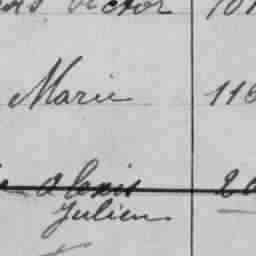 Victor 101
Marie 116
Alexis 20
Julien